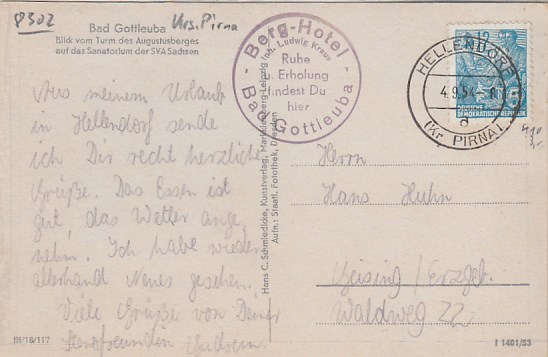 8302
Krs. Pirna
Bad Gottleuba
Blick vom Turm des Augustusberges
auf das Sanatorium der SVA Sachsen
Aus meinem Urlaub
in Hellendorf sende
ich Dir recht herzliche
Grüße. Das Essen ist
gut, das Wetter ange-
nehm. Ich habe wieder
allerhand Neues gesehen.
Viele Grüße von Deiner
III/18/117
Berg-Hotel
Joh. Ludwig Kraus
Ruhe
u. Erholung
findest Du
hier
Bad Gottleuba
Hans C. Schmiedicke, Kunstverlag, Markkleeberg-Leipzig
Aufn.: Staatl. Fotothek, Dresden
HELLENDORF
4.9.54
(Kr. PIRNA)
12
DEUTSCHE
DEMOKRATISCHE REPUBLIK
Herrn
Hans Huhn
Geising/Erzgeb.
Waldweg 22
I 1401/53